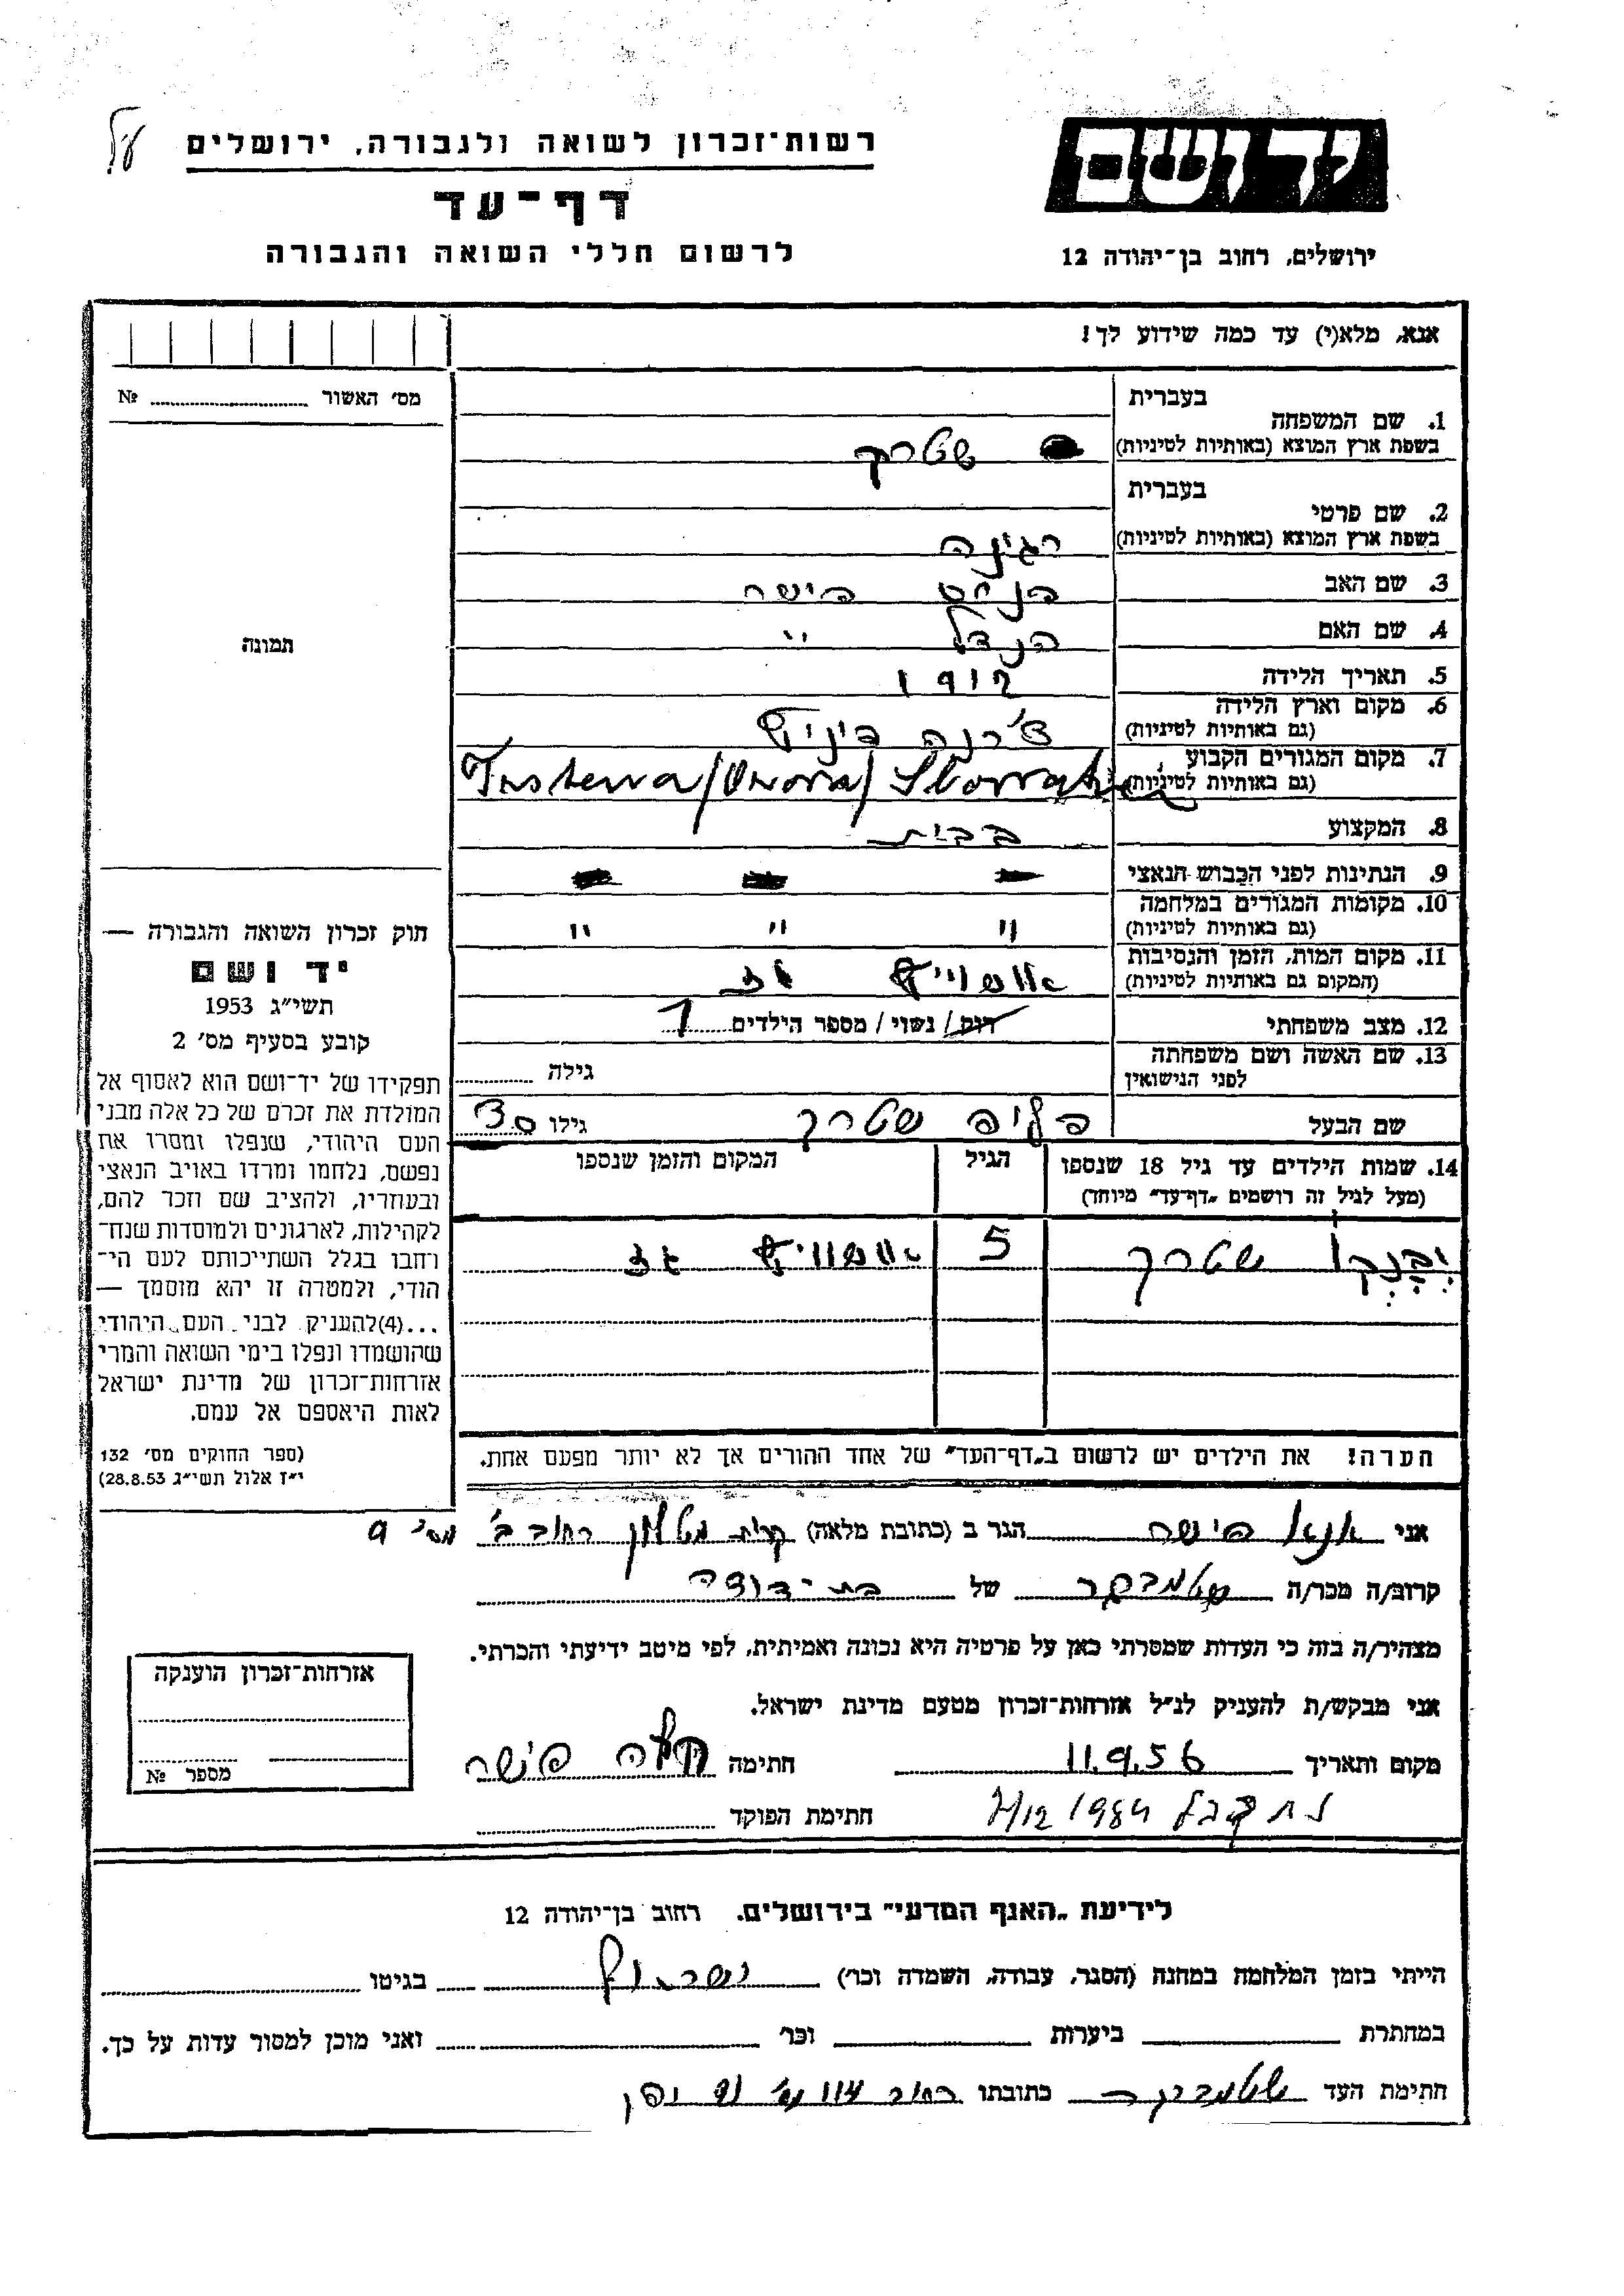 רשות־זכרון לשואה ולגבורה, ירושלים
דף־עד
לרשום חללי השואה והגבורה
יד ושם
ירושלים, רחוב בן־יהודה 12
אנא, מלא(י) עד כמה שידוע לך!
מס׳ האשור № 
תמונה
1. שם המשפחה בעברית
בשפת ארץ המוצא (באותיות לטיניות) שטרך
2. שם פרטי בעברית
בשפת ארץ המוצא (באותיות לטיניות) רגינה
3. שם האב פישר
4. שם האם הנדל ״
5. תאריך הלידה 1912
6. מקום וארץ הלידה
(גם באותיות לטיניות)
7. מקום המגורים הקבוע
(גם באותיות לטיניות)
8. המקצוע בבית
9. הנתינות לפני הכבוש הנאצי
10. מקומות המגורים במלחמה
(גם באותיות לטיניות) ״ ״ ״
11. מקום המות, הזמן והנסיבות
(המקום גם באותיות לטיניות) אושויץ
12. מצב משפחתי רווק/ נשוי/ מספר הילדים 1
13. שם האשה ושם משפחתה
לפני הנישואין גילה
שם הבעל פליפ שטרך גילו 30
14. שמות הילדים עד גיל 18 שנספו הגיל המקום והזמן שנספו
(מעל לגיל זה רושמים „דף־עד״ מיוחד)
שטרך 5 אושויץ
הערה! את הילדים יש לרשום ב„דף־העד״ של אחד ההורים אך לא יותר מפעם אחת.
חוק זכרון השואה והגבורה —
יד ושם
תשי״ג 1953
קובע בסעיף מס׳ 2
תפקידו של יד־ושם הוא לאסוף אל
המולדת את זכרם של כל אלה מבני
העם היהודי, שנפלו ומסרו את
נפשם, נלחמו ומרדו באויב הנאצי
ובעוזריו, ולהציב שם וזכר להם,
לקהילות, לארגונים ולמוסדות שנח־
רבו בגלל השתייכותם לעם הי־
הודי, ולמטרה זו יהא מוסמך —
...(4)להעניק לבני העם היהודי
שהושמדו ונפלו בימי השואה והמרי
אזרחות־זכרון של מדינת ישראל
לאות היאספם אל עמם.
(ספר החוקים מס׳ 132
י״ז אלול תשי״ג 28.8.53)
אני פישר הגר ב (כתובת מלאה) רחוב ב׳ מס׳ 9
קרוב/ה מכר/ה של
מצהיר/ה בזה כי העדות שמסרתי כאן על פרטיה היא נכונה ואמיתית, לפי מיטב ידיעתי והכרתי.
אני מבקש/ת להעניק לנ״ל אזרחות־זכרון מטעם מדינת ישראל.
מקום ותאריך 11.9.56 חתימה פישר
1984
חתימת הפוקד
אזרחות־זכרון הוענקה
מספר №
לידיעת „האגף המדעי״ בירושלים, רחוב בן־יהודה 12
הייתי בזמן המלחמה במחנה (הסגר, עבודה, השמדה וכו׳) בגיטו
במחתרת ביערות וכו׳ ואני מוכן למסור עדות על כך.
חתימת העד כתובתו רחוב 114 מס׳